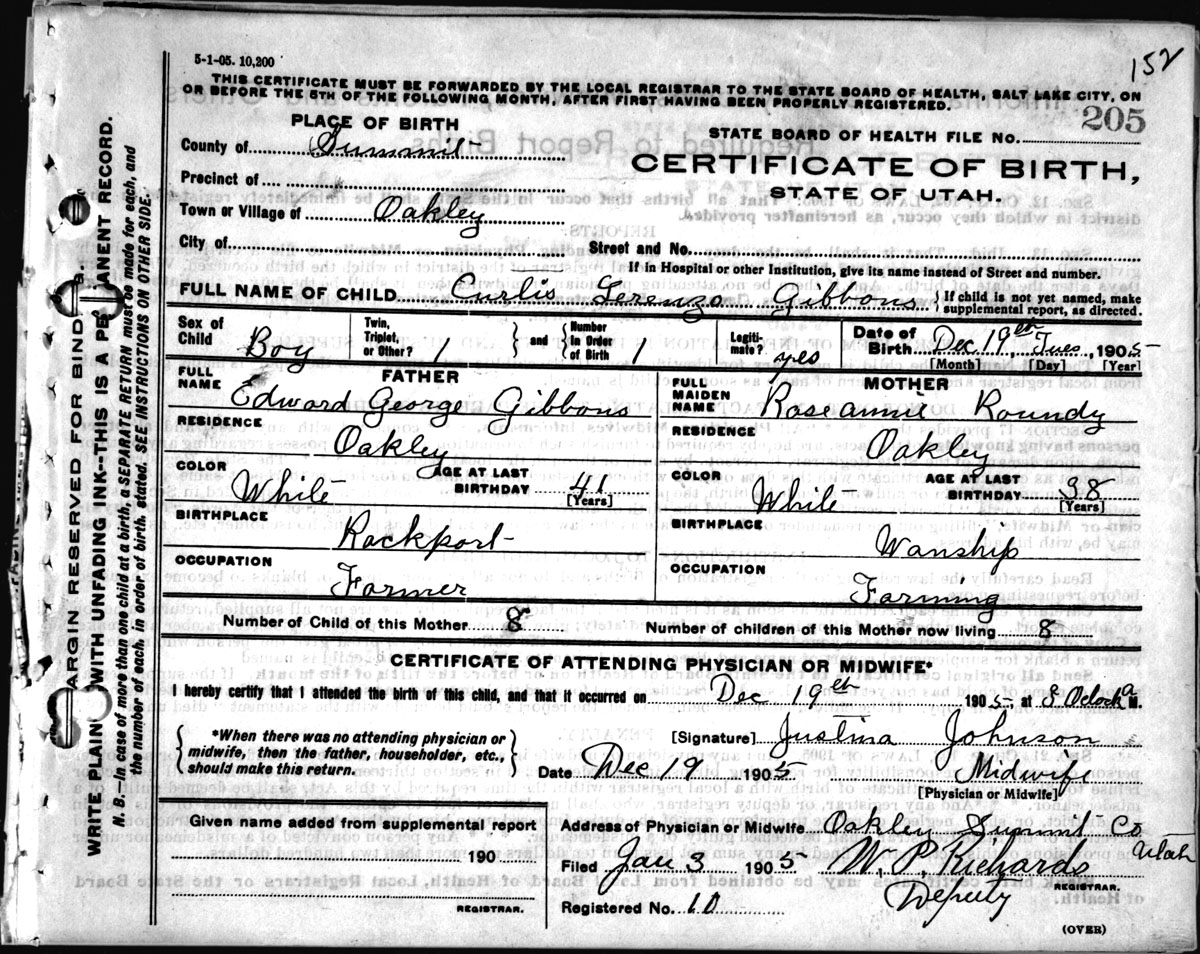 152
5-1-05. 10,200
THIS CERTIFICATE MUST BE FORWARDED BY THE LOCAL REGISTRAR TO THE STATE BOARD OF HEALTH, SALT LAKE CITY, ON
OR BEFORE THE 5TH OF THE FOLLOWING MONTH, AFTER FIRST HAVING BEEN PROPERLY REGISTERED.
205
PLACE OF BIRTH
STATE BOARD OF HEALTH FILE No.
County of Summit
CERTIFICATE OF BIRTH,
Precinct of
STATE OF UTAH.
Town or Village of Oakley
City of
Street and No.
If in Hospital or other Institution, give its name instead of Street and number.
FULL NAME OF CHILD Curtis Lerenzo Gibbons { If child is not yet named, make
supplemental report, as directed.
Sex of Child Boy
Twin, Triplet, or Other? 1
and
Number In Order of Birth 1
Legitimate? yes
Date of Birth Dec 19th, Tues, 1905
[Month] [Day] [Year]
FATHER
FULL NAME Edward George Gibbons
RESIDENCE
Oakley
COLOR White
AGE AT LAST BIRTHDAY 41
[Years]
BIRTHPLACE
Rockport
OCCUPATION
Farmer
MOTHER
FULL MAIDEN NAME Roseannie Roundy
RESIDENCE
Oakley
COLOR White
AGE AT LAST BIRTHDAY 38
[Years]
BIRTHPLACE
Wanship
OCCUPATION
Farming
Number of Child of this Mother 8
Number of children of this Mother now living 8
CERTIFICATE OF ATTENDING PHYSICIAN OR MIDWIFE*
I hereby certify that I attended the birth of this child, and that it occurred on Dec 19th 1905, at 8 Oclock a M.
{ *When there was no attending physician or
midwife, then the father, householder, etc.,
should make this return. }
[Signature] Justina Johnson
Date Dec 19 1905 Midwife
[Physician or Midwife]
Given name added from supplemental report
190
REGISTRAR.
Address of Physician or Midwife Oakley Summit Co
Utah
Filed Jan 3 1905 W. P. Richards
REGISTRAR.
Deputy
Registered No. 10
(OVER)
MARGIN RESERVED FOR BINDING.
WRITE PLAINLY WITH UNFADING INK--THIS IS A PERMANENT RECORD.
N. B.—In case of more than one child at a birth, a SEPARATE RETURN must be made for each, and
the number of each, in order of birth, stated. SEE INSTRUCTIONS ON OTHER SIDE.